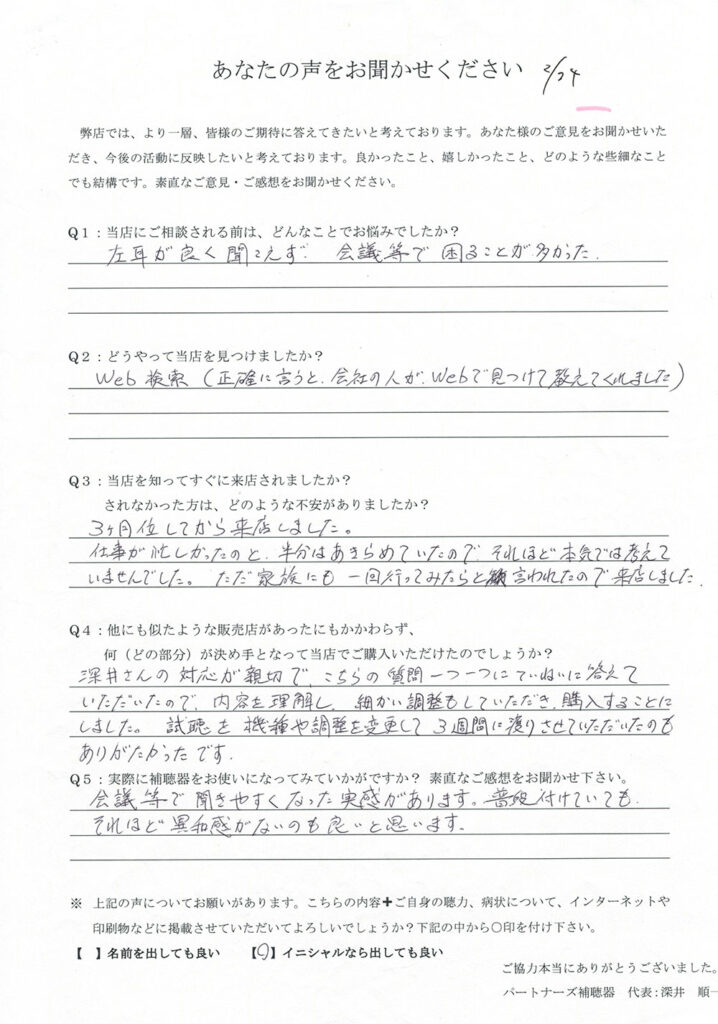 あなたの声をお聞かせください 2/24
弊店では、より一層、皆様のご期待に答えてきたいと考えております。あなた様のご意見をお聞かせいた
だき、今後の活動に反映したいと考えております。良かったこと、嬉しかったこと、どのような些細なこと
でも結構です。素直なご意見・ご感想をお聞かせください。
Q1：当店にご相談される前は、どんなことでお悩みでしたか？
左耳が良く聞こえず、会議等で困ることが多かった.
Q2：どうやって当店を見つけましたか？
Web検索（正確に言うと、会社の人が、Webで見つけて教えてくれました）
Q3：当店を知ってすぐに来店されましたか？
されなかった方は、どのような不安がありましたか？
3ヶ月位してから来店しました。
仕事が忙しかったのと、半分はあきらめていたので、それほど本気では考えて
いませんでした。ただ家族にも一回行ってみたらと言われたので来店しました.
Q4：他にも似たような販売店があったにもかかわらず、
何（どの部分）が決め手となって当店でご購入いただけたのでしょうか？
深井さんの対応が親切で、こちらの質問一つ一つにていねいに答えて
いただいたので、内容を理解し、細かい調整もしていただき、購入することに
しました。試聴を機種や調整を変更して3週間に渡りさせていただいたのも
ありがたかったです.
Q5：実際に補聴器をお使いになってみていかがですか？ 素直なご感想をお聞かせ下さい。
会議等で聞きやすくなった実感があります。普段付けていても、
それほど異和感がないのも良いと思います.
※ 上記の声についてお願いがあります。こちらの内容＋ご自身の聴力、病状について、インターネットや
印刷物などに掲載させていただいてよろしいでしょうか？下記の中から〇印を付け下さい。
【 】名前を出しても良い 【〇】イニシャルなら出しても良い
ご協力本当にありがとうございました。
パートナーズ補聴器 代表：深井 順一